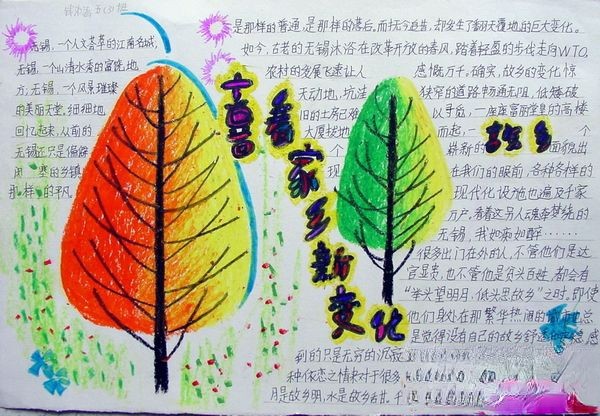 喜看家乡新变化
故乡
无锡,一个人文荟萃的江南名城,
无锡,一个山清水秀的富饶地
方,无锡,一个风景璀璨
的美丽天堂,细细地
回忆起来,从前的
无锡还只是偏僻
闭塞的乡镇
那样的平凡
是那样的普通,是那样的落后。而抚今追昔,却发生了翻天覆地的巨大变化。
如今,古老的无锡沐浴在改革开放的春风,踏着轻盈的步伐走向WTO,
农村的发展飞速让人感慨万千,确实,故乡的变化惊
天动地,坑洼狭窄的道路畅通无阻,低矮破
旧的土房已难以寻觅,一座座富丽堂皇的高楼
大厦拔地而起,一个
个崭新的面貌出
现在我们的眼前,各种各样的
现代化设施也遍及千家
万户,看着这另人魂牵梦绕的
无锡,我如痴如醉……
很多出门在外的人,不管他们是达
官显贵,也不管他是贫头百姓,都会有
“举头望明月,低头思故乡”之时,即使
他们身处在那繁华热闹的都市也总
是觉得没有自己的故乡舒适
感到的只是无穷的沉寂
种依恋之情来对于很多
月是故乡明,水是故乡甜。千